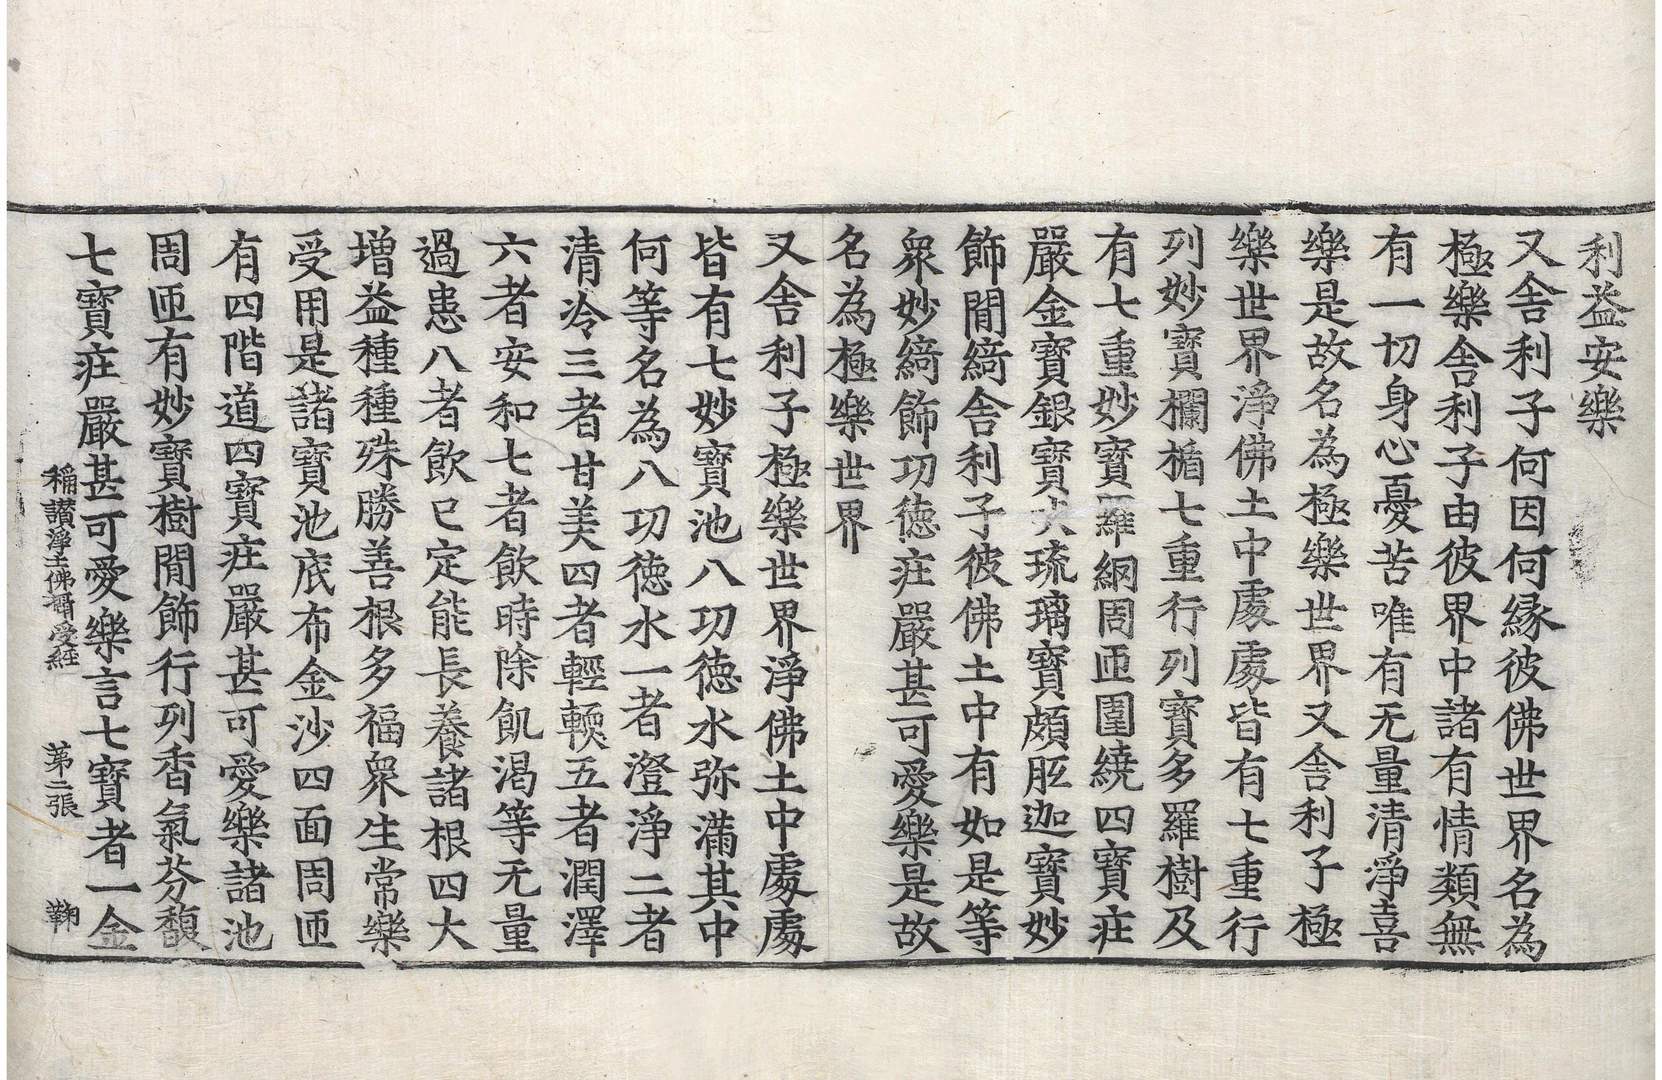 利益安樂
又舍利子何因何緣彼佛世界名為
極樂舍利子由彼界中諸有情類無
有一切身心憂苦唯有无量清淨喜
樂是故名為極樂世界又舍利子極
樂世界淨佛土中處處皆有七重行
列妙寶欄楯七重行列寶多羅樹及
有七重妙寶羅網周匝圍繞四寶莊
嚴金寶銀寶吠琉璃寶頗胝迦寶妙
飾間綺舍利子彼佛土中有如是等
眾妙綺飾功德莊嚴甚可愛樂是故
名為極樂世界
又舍利子極樂世界淨佛土中處處
皆有七妙寶池八功德水弥滿其中
何等名為八功德水一者澄淨二者
清冷三者甘美四者輕輭五者潤澤
六者安和七者飲時除飢渴等无量
過患八者飲已定能長養諸根四大
增益種種殊勝善根多福眾生常樂
受用是諸寶池底布金沙四面周匝
有四階道四寶莊嚴甚可愛樂諸池
周匝有妙寶樹間飾行列香氣芬馥
七寶莊嚴甚可愛樂言七寶者一金
稱讚淨土佛攝受經 第二張 鞠